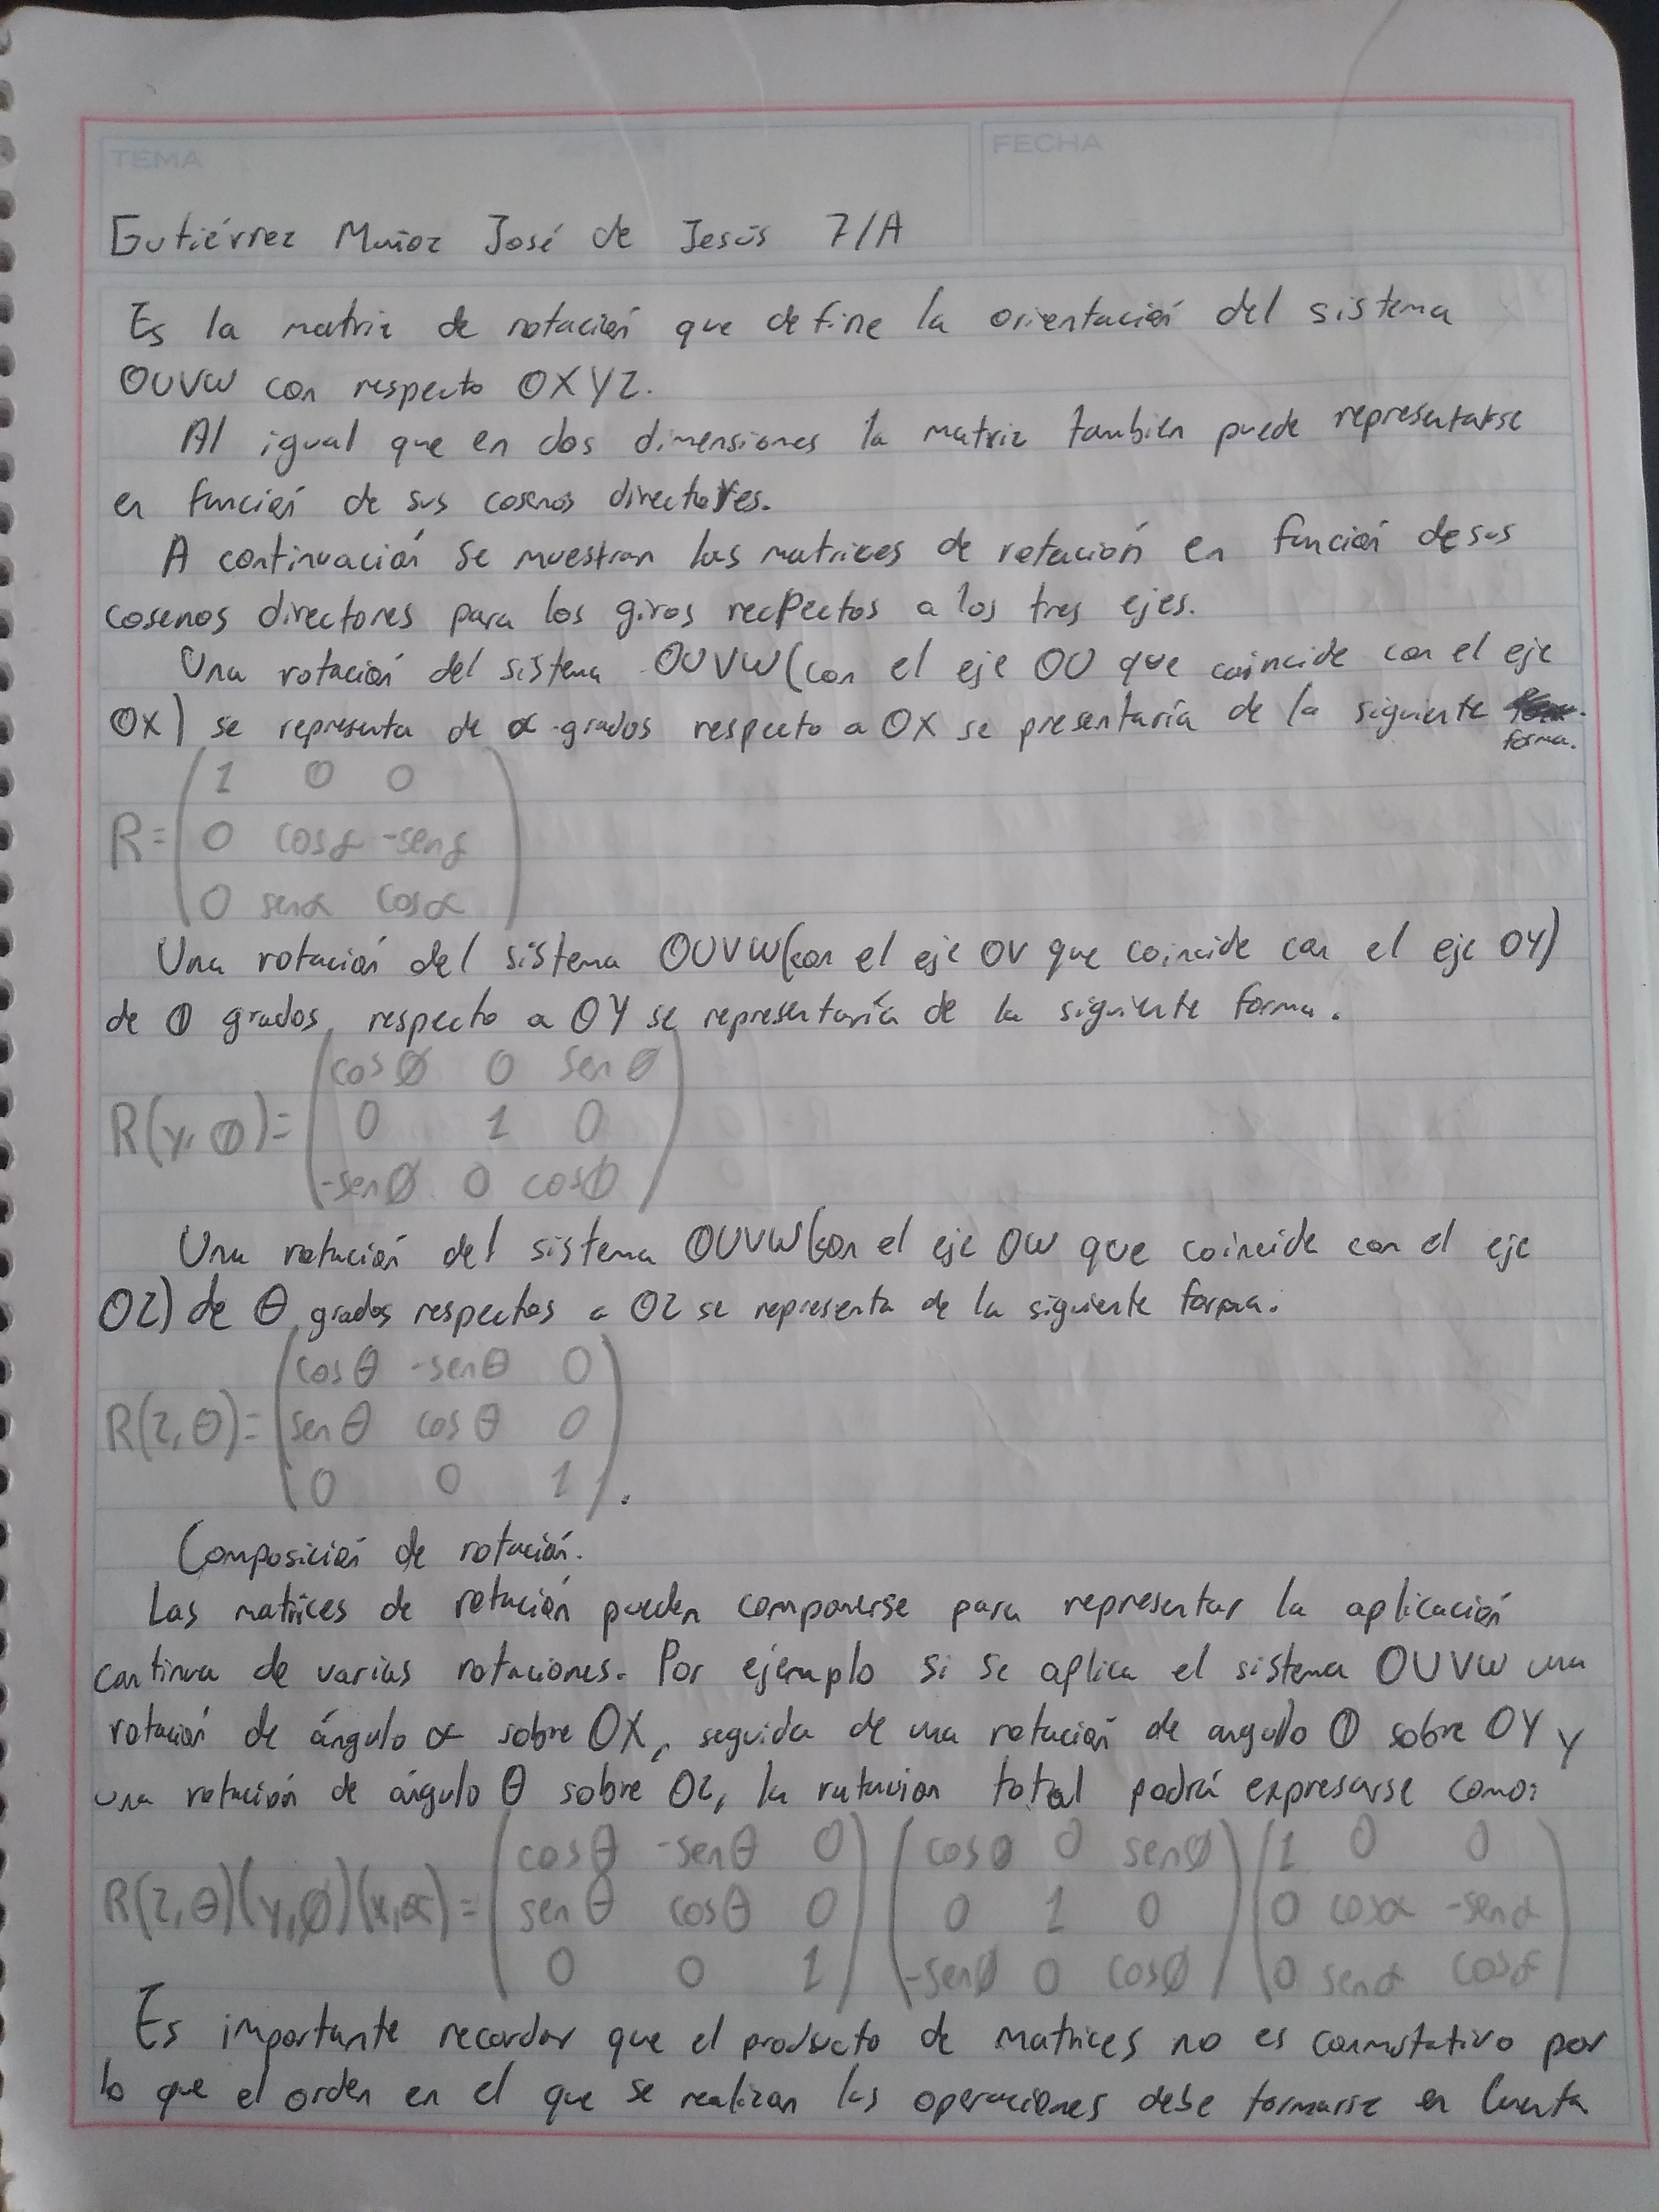 TEMA
FECHA
Gutiérrez Muñoz José de Jesús 7/A
Es la matriz de rotación que define la orientación del sistema
OUVW con respecto OXYZ.
Al igual que en dos dimensiones la matriz tambien puede representarse
en función de sus cosenos directores.
A continuación se muestran las matrices de rotación en función de sus
cosenos directores para los giros recPectos a los tres ejes.
Una rotación del sistema OUVW (con el eje OU que coincide con el eje
OX) se representa de α grados respecto a OX se presentaría de la siguiente
forma.
1 0 0
R = 0 cosα -senα
0 senα cosα
Una rotación del sistema OUVW (con el eje OV que coincide con el eje OY)
de Φ grados, respecto a OY se representaría de la siguiente forma.
cos Ø 0 sen Ø
R(y, Φ) = 0 1 0
-sen Ø 0 cos Ø
Una rotación del sistema OUVW (con el eje OW que coincide con el eje
OZ) de θ grados respectos a OZ se representa de la siguiente forma.
cos θ -sen θ 0
R(z, θ) = sen θ cos θ 0
0 0 1.
Composición de rotación.
Las matrices de rotación pueden componerse para representar la aplicación
continua de varias rotaciones. Por ejemplo si se aplica el sistema OUVW una
rotación de ángulo α sobre OX, seguida de una rotación de angulo Φ sobre OY y
una rotación de ángulo θ sobre OZ, la rotacion total podrá expresarse como:
cos θ -sen θ 0 cos Ø 0 sen Ø 1 0 0
R(z, θ)(y, Ø)(x, α) = sen θ cos θ 0 0 1 0 0 cosα -senα
0 0 1 -sen Ø 0 cos Ø 0 senα cosα
Es importante recordar que el producto de matrices no es conmutativo por
lo que el orden en el que se realizan las operaciones debe tormarse en cuenta